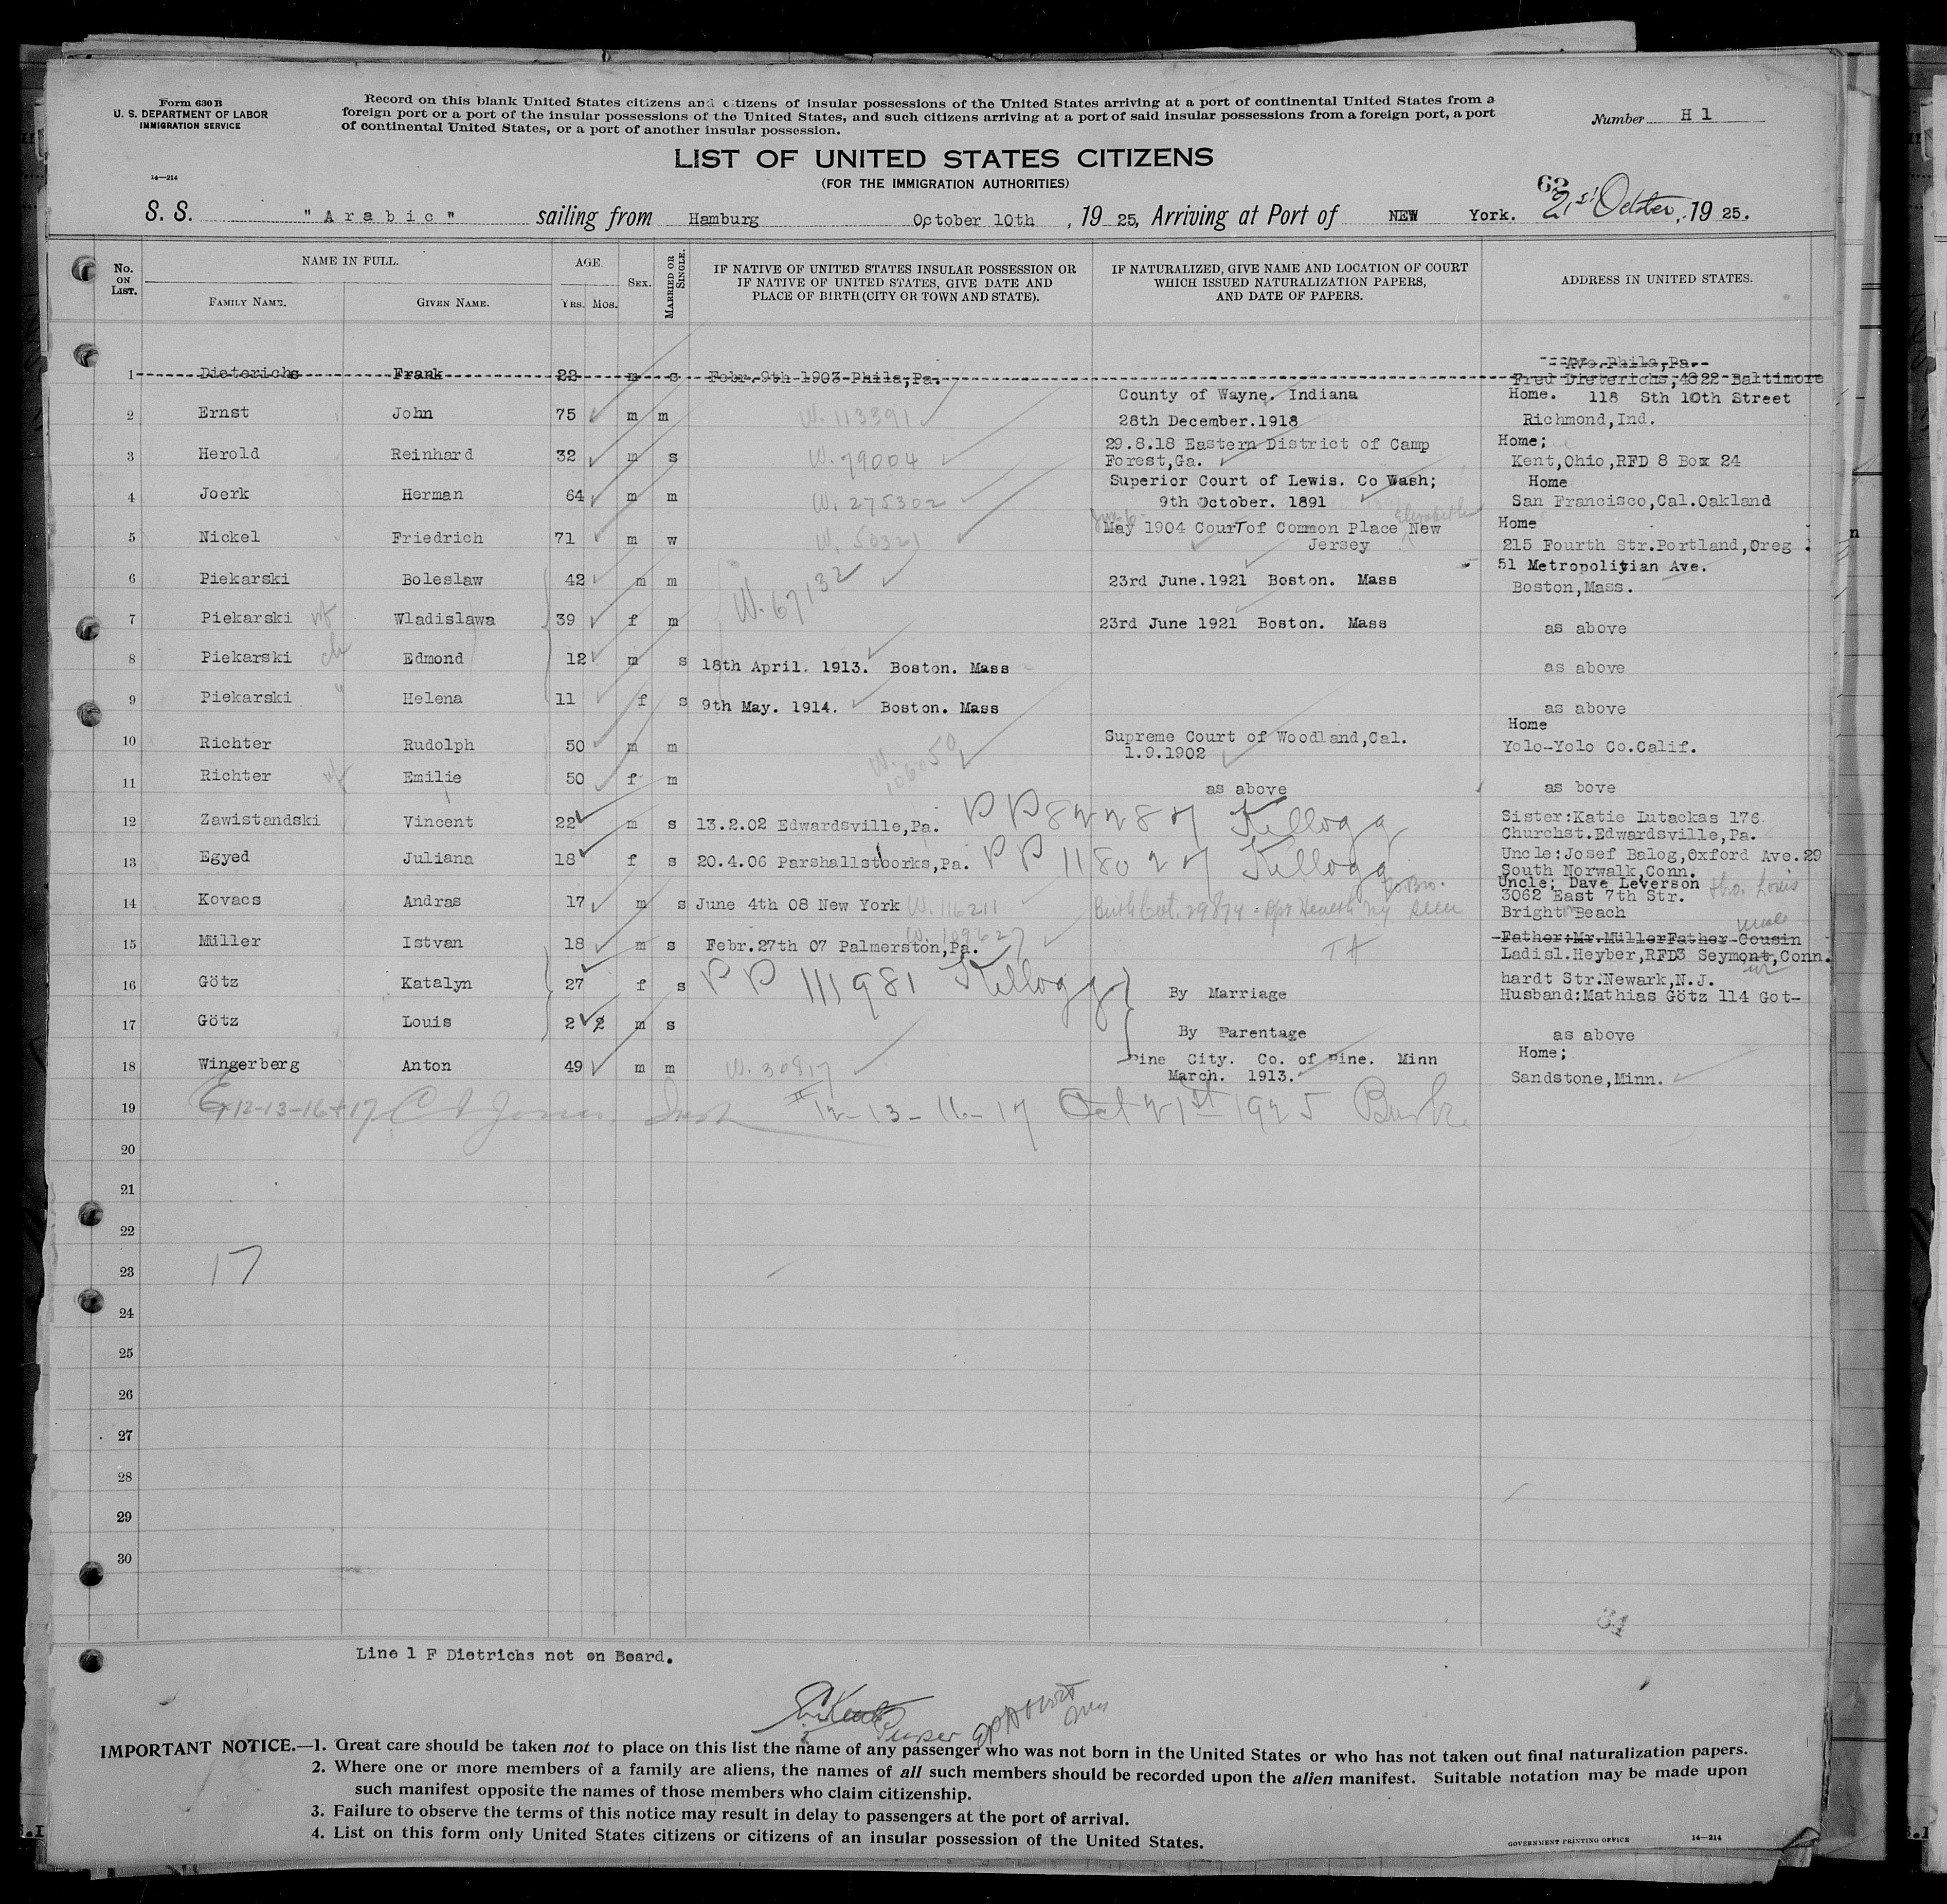 Form 630 B
U. S. DEPARTMENT OF LABOR
IMMIGRATION SERVICE
14—214
Record on this blank United States citizens and citizens of insular possessions of the United States arriving at a port of continental United States from a
foreign port or a port of the insular possessions of the United States, and such citizens arriving at a port of said insular possessions from a foreign port, a port
of continental United States, or a port of another insular possession.
Number H 1
LIST OF UNITED STATES CITIZENS
(FOR THE IMMIGRATION AUTHORITIES)
62
S. S. "Arabic" sailing from Hamburg October 10th, 1925, Arriving at Port of NEW York. 21st October, 1925.
No. ON LIST.
NAME IN FULL.
FAMILY NAME. GIVEN NAME.
AGE.
YRS. MOS.
SEX.
MARRIED OR SINGLE.
IF NATIVE OF UNITED STATES INSULAR POSSESSION OR
IF NATIVE OF UNITED STATES, GIVE DATE AND
PLACE OF BIRTH (CITY OR TOWN AND STATE).
IF NATURALIZED, GIVE NAME AND LOCATION OF COURT
WHICH ISSUED NATURALIZATION PAPERS,
AND DATE OF PAPERS.
ADDRESS IN UNITED STATES.
Ave.Phila,Pa.
1 Dieterichs Frank 22 m s Febr.9th 1903 Phila,Pa. Fred Dieterichs,4822 Baltimore
County of Wayne. Indiana Home. 118 Sth 10th Street
2 Ernst John 75 m m W. 113391 28th December.1918 Richmond,Ind.
29.8.18 Eastern District of Camp Home;
3 Herold Reinhard 32 m s W. 79004 Forest,Ga. Kent,Ohio,RFD 8 Box 24
Superior Court of Lewis. Co Wash; Home
4 Joerk Herman 64 m m W. 275302 9th October. 1891 San Francisco,Cal.Oakland
Elizabeth
May 1904 Court of Common Place New Home
5 Nickel Friedrich 71 m w W. 50321 Jersey 215 Fourth Str.Portland,Oreg.
51 Metropolitian Ave.
6 Piekarski Boleslaw 42 m m W. 67132 23rd June.1921 Boston. Mass Boston,Mass.
7 Piekarski wf Wladislawa 39 f m 23rd June 1921 Boston. Mass as above
8 Piekarski ch Edmond 12 m s 18th April. 1913. Boston. Mass as above
9 Piekarski " Helena 11 f s 9th May. 1914. Boston. Mass as above
Supreme Court of Woodland,Cal. Home
10 Richter Rudolph 50 m m W. 106050 1.9.1902 Yolo-Yolo Co.Calif.
11 Richter wf Emilie 50 f m as above as bove
Sister:Katie Lutackas 176
12 Zawistandski Vincent 22 m s 13.2.02 Edwardsville,Pa. PP82287 Kellogg Churchst.Edwardsville,Pa.
Uncle:Josef Balog,Oxford Ave.29
13 Egyed Juliana 18 f s 20.4.06 Parshallstborks,Pa. PP 118027 Kellogg South Norwalk,Conn.
Uncle; Dave Leverson
3062 East 7th Str.
14 Kovacs Andras 17 m s June 4th 08 New York W. 116211 Birth Cert. 29874 Bright Beach
15 Müller Istvan 18 m s Febr.27th 07 Palmerston,Pa. W. 109627 Father:Mr.MüllerFather Cousin
Ladisl.Heyber,RFD3 Seymont,Conn.
hardt Str.Newark,N.J.
16 Götz Katalyn 27 f s PP 111981 Kellogg By Marriage Husband:Mathias Götz 114 Got-
17 Götz Louis 2 2 m s By Parentage as above
Pine City. Co. of Pine. Minn Home;
18 Wingerberg Anton 49 m m W. 30817 March. 1913. Sandstone,Minn.
19 Ex 12-13-16+17 12-13-16-17 Oct 21st 1925
20
21
22
23 17
24
25
26
27
28
29
30
34
Line 1 F Dietrichs not on Board.
Purser
IMPORTANT NOTICE.—1. Great care should be taken not to place on this list the name of any passenger who was not born in the United States or who has not taken out final naturalization papers.
2. Where one or more members of a family are aliens, the names of all such members should be recorded upon the alien manifest. Suitable notation may be made upon
such manifest opposite the names of those members who claim citizenship.
3. Failure to observe the terms of this notice may result in delay to passengers at the port of arrival.
4. List on this form only United States citizens or citizens of an insular possession of the United States.
GOVERNMENT PRINTING OFFICE 14—214